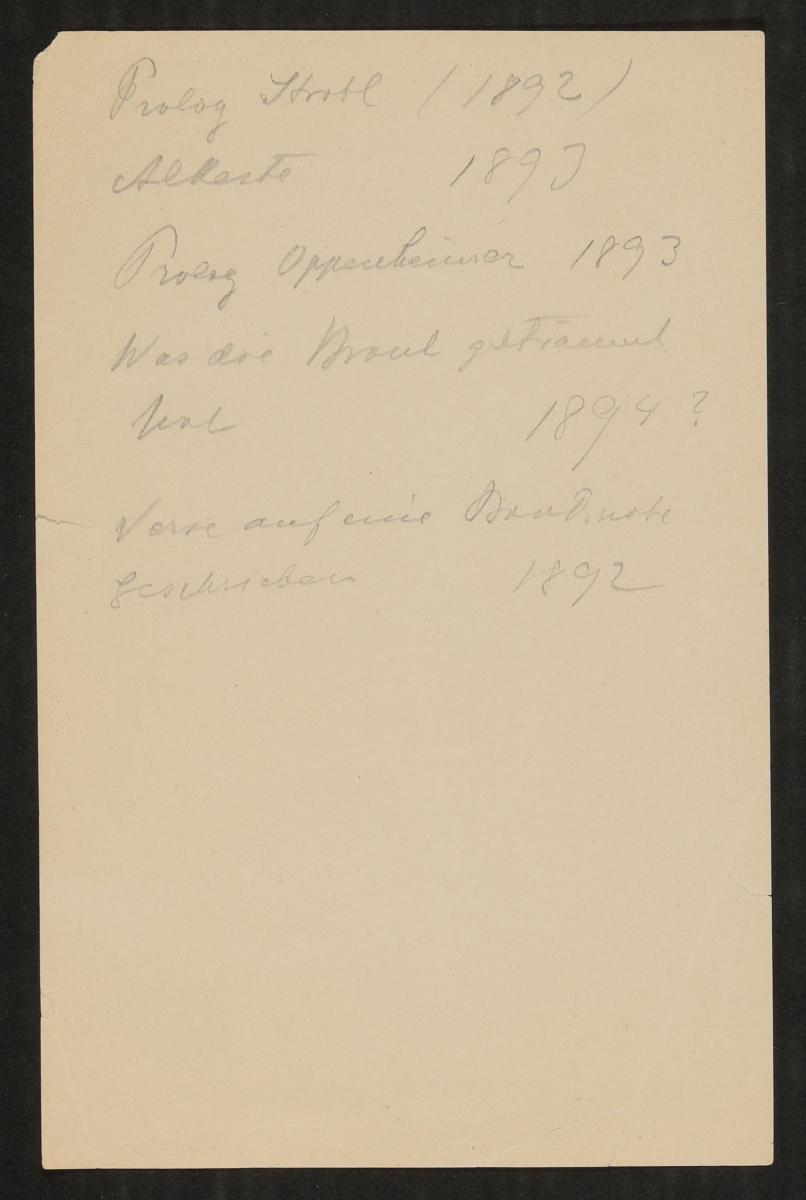 Prolog Strobl (1892)
Alkeste 1893
Prolog Oppenheimer 1893
Was die Braut geträumt
hat 1894?
Verse auf eine Banknote
geschrieben 1892